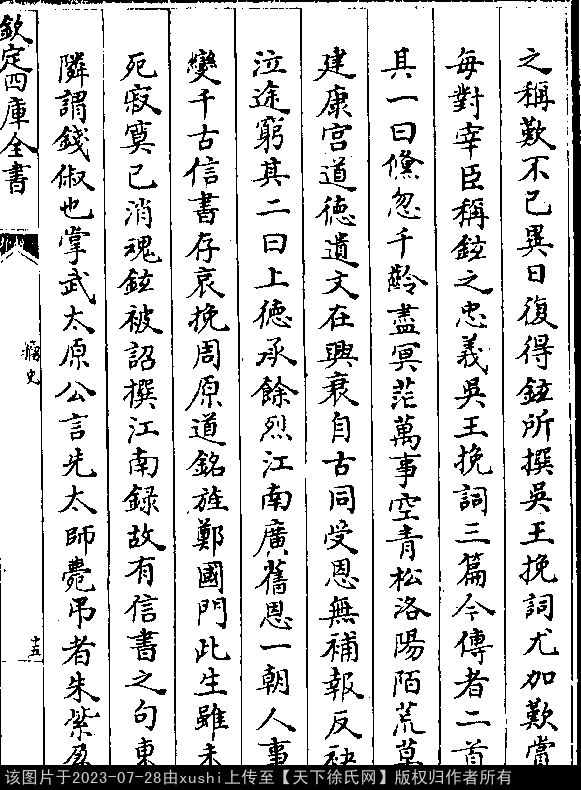 之稱歎不已異日復得鉉所撰吳王挽詞尤加歎賞
每對宰臣稱鉉之忠義吳王挽詞三篇今傳者二首
其一曰儵忽千齡盡冥茫萬事空青松洛陽陌荒草
建康宫道徳遺文在興衰自古同受恩無補報反袂
泣途窮其二曰上徳承餘烈江南廣舊恩一朝人事
變千古信書存哀挽周原道銘旌鄭國門此生雖未
死寂寞已消魂鉉被詔撰江南録故有信書之句東
隣謂錢俶也掌武太原公言先太師薨吊者朱紫盈
欽定四庫全書
史
十五
该图片于2023-07-28由xushi上传至【天下徐氏网】版权归作者所有